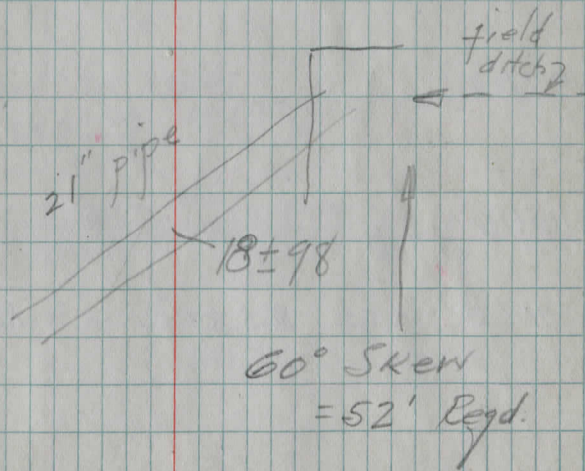 field
ditch
21" pipe
18±98
60° Skew
=52' Reqd.